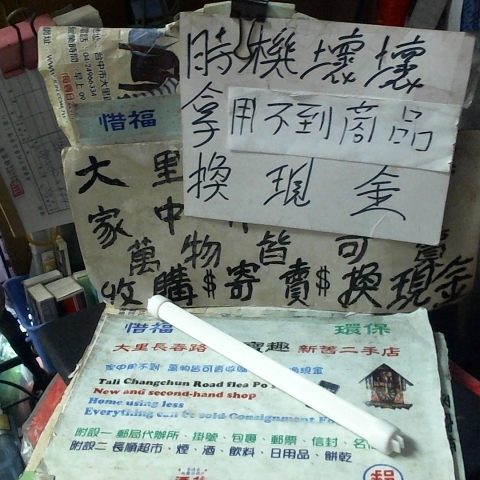 時機壞壞
拿用不到商品
換現金
惜福
04-24966334
大里
家中
萬物皆可
收購$寄賣$換現金
惜福 環保
大里長春路 寶趣 新舊二手店
Tali Changchun Road flea Po
New and second-hand shop
Home using less
Everything can be sold Consignment Fo
附設一 郵局代辦所、掛號、包裹、郵票、信封、名
附設二 長順超市、煙、酒、飲料、日用品、餅乾